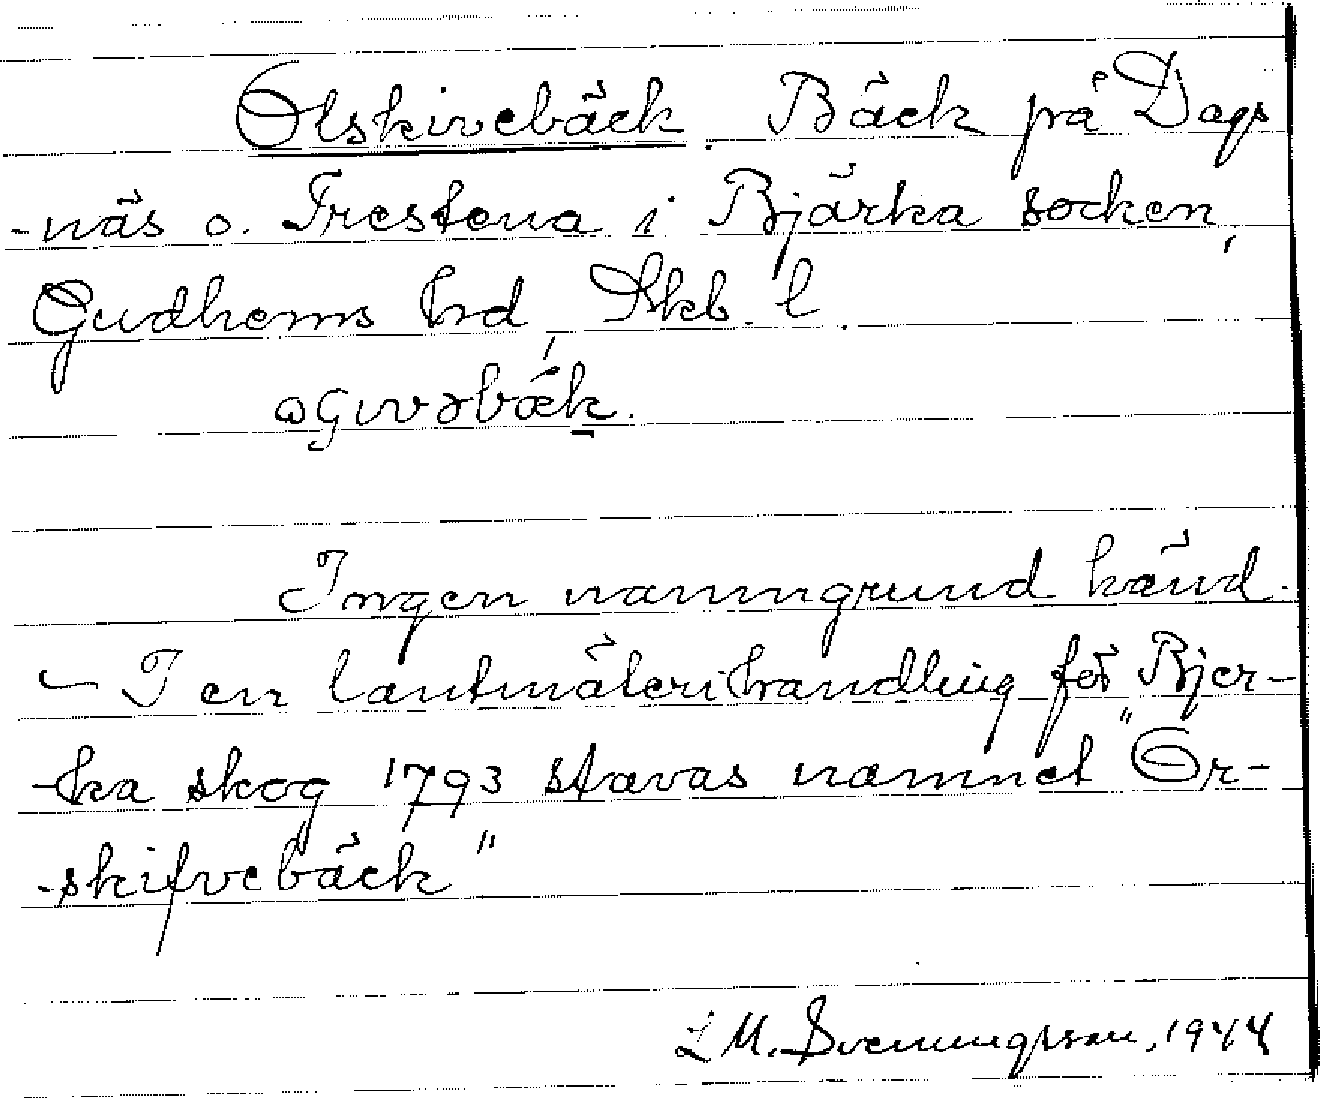 Olskirebäck. Bäck på Dags
-näs o. Frestena i Bjärka socken,
Gudhems hrd, Skb. l.
Ingen namngrund känd.
– I en lantmäterihandling för Bjer-
-ka skog 1793 stavas namnet "Or-
-skifvebäck"
L M. Svenungsson, 1944